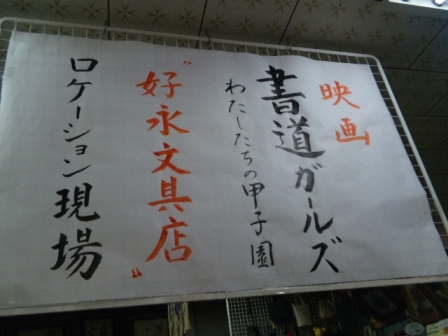 映画
書道ガールズ
わたしたちの甲子園
"好永文具店"
ロケーション現場